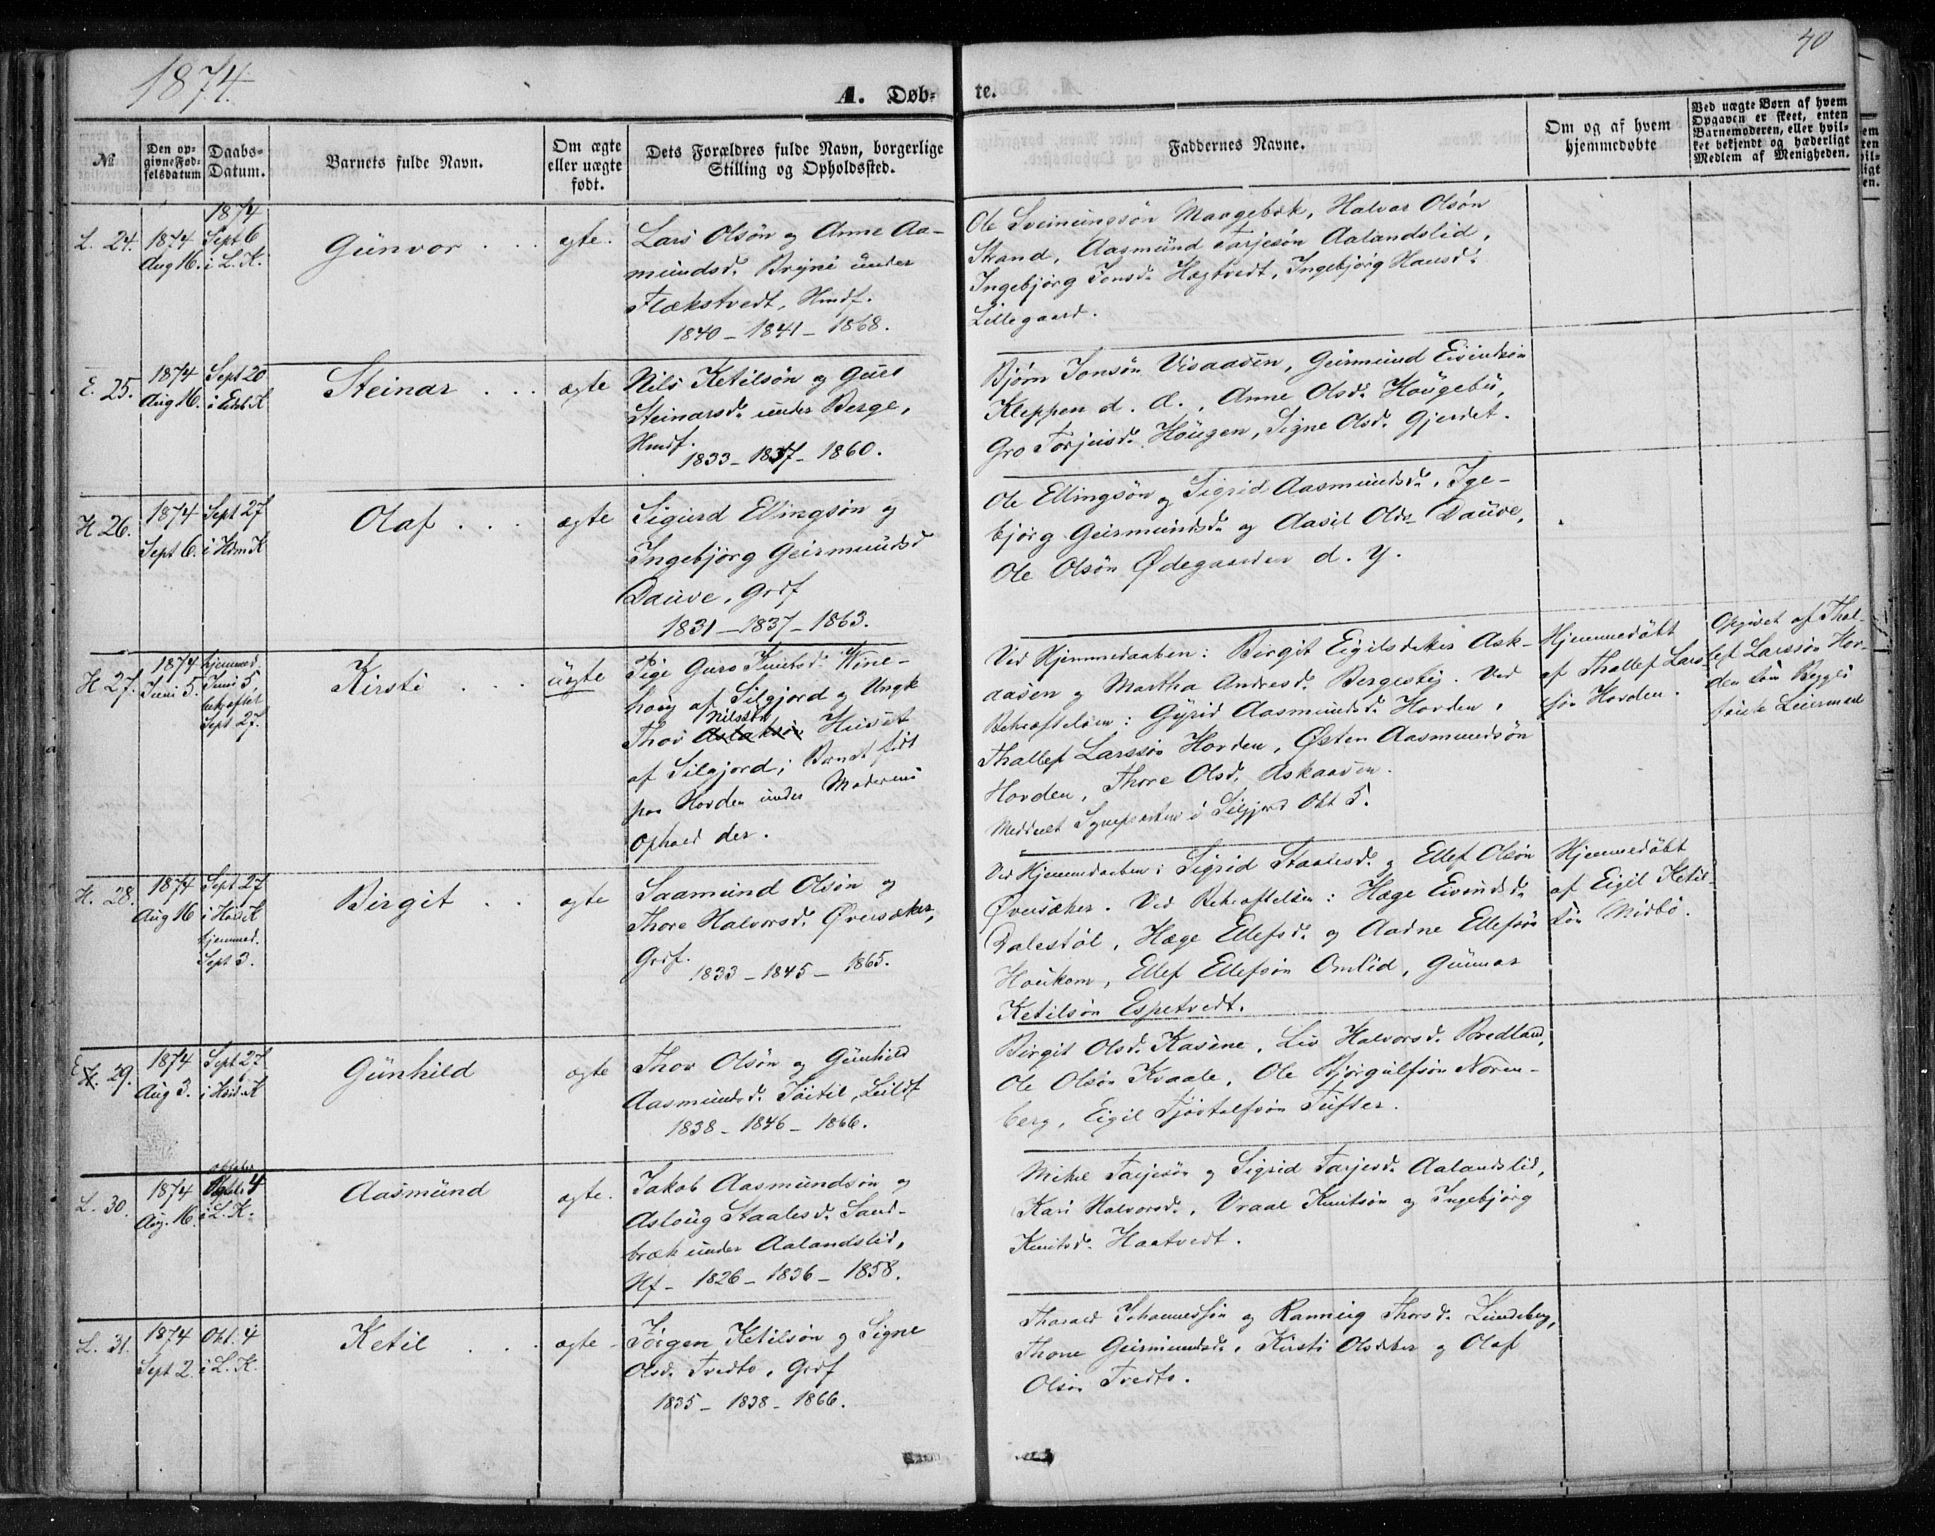 1874.
A. Døb-
te.
40
№
Den op-
givne Fød-
selsdatum
Daabs-
Datum.
Barnets fulde Navn.
Om ægte
eller uægte
født.
Dets Forældres fulde Navn, borgerlige
Stilling og Opholdssted.
Faddernes Navne.
Om og af hvem
hjemmedøbte
Ved uægte Børn af hvem
Opgaven er skeet, enten
Barnemoderen, eller hvil-
ket bekjendt og hæderligt
Medlem af Menigheden.
L. 24.
1874
Aug 16.
1874
Sept 6
i L. K.
Gunvor . . .
egte.
Lars Olsøn og Anne Aa-
mundsd. Bryni under
Flækstvedt, Hmdf.
1840 - 1841 - 1868.
Ole Sveinungsøn Maagebæk, Halvor Olsøn
Strand, Aasmund Tarjesøn Aalandslid,
Ingebjørg Jonsd. Hægtvedt, Ingebjørg Hansd.
Lillegaard.
E. 25.
1874
Aug 16.
Sept 20
Steinar . . .
ægte
Nils Ketilsøn og
Steinarsd. under Berge,
Hmdf.
1833 - 1837 - 1860.
Bjørn Jonsøn Visaasen, Geirmund Eivindsøn
Kleppen d. æ., Anne Olsd. Hougebu,
Gro Torjeisd. Hougen, Signe Olsd. Gjerdet.
H 26.
1874
Sept 6.
Sept 27
i Hdm K
Olaf . . .
ægte
Sigurd Ellingsøn og
Ingebjørg Geirmundsd
Dauve, Grdf
1831 - 1837 - 1863.
Ole Ellingsøn og Sigrid Aasmundsd., Ige-
bjørg Geirmundsd. og Aasil Olsd. Dauve,
Ole Olsøn Ødegaarden d. y.
H 27.
1874
Juni 5.
hjemmed.
Juni 5
bekræftet
Sept 27.
Kirsti . . .
uegte
Pige Guro Knutsd. Vine-
houg af Silgjord og Ungk
Nilssøn
Thor Aslaksøn
af Silgjord; Barnet født
paa Hovden under Moderens
Ophold der.
Ved Hjemmedaaben: Birgit Eigilsdotter Ask-
aasen og Martha Andresd. Bergesbij. Ved
Bekræftelsen: Gyrid Aasmundsd. Hovden,
Thallef Larssøn Hovden, Østen Aasmundsøn
Hovden, Thore Olsd. Askaasen.
Meddelt Sognepresten i Silgjord Okt 5.
Hjemmedøbt
af Thallef Lars-
søn Hovden.
Opgivet af Thal-
lef Larssøn Hov-
den
H. 28.
1874
Aug 16
Sept 27
hjemmed.
Sept 3.
Birgit . .
egte
Saamund Olsøn og
Thore Halvorsd. Øversaker,
Grdf.
1833 - 1845 - 1865.
Ved Hjemmedaaben: Sigrid Staalesd. og Ellef Olsøn
Øversaker. Ved Bekræftelsen: Hæge Eivindsd.
Dalestøl, Hæge Ellefsd. og Aadne Ellefsøn
Houkom, Ellef Ellefsøn Omlid, Gunnar
Ketilsøn Espetvedt.
Hjemmedøbt
af Eigil Ketil-
søn Midbø.
E
H. 29.
1874
Aug 3.
Sept 27
Gunhild
egte
Thor Olsøn og Gunhild
Aasmundsd. Tøitil, Leildf
1838 - 1846 - 1866.
Birgit Olsd. Kasene, Liv Halvorsd. Bredland,
Ole Olsøn Kvaale, Ole Bjørgulfsøn Noren-
berg, Eigil Tjøstolfsøn Tufter.
L. 30.
1874
Aug. 16.
oktober
4
i L. K.
Aasmund
egte.
Jakob Aasmundsøn og
Asloug Staalesd. Sand-
bræk under Aalandslid,
Hf - 1826 - 1836 - 1858.
Mikel Tarjesøn og Sigrid Tarjesd. Aalandslid,
Kari Halvorsd., Vraal Knutsøn og Ingebjørg
Knutsd. Haatvedt.
L. 31.
1874
Sept 2.
Okt. 4
i L. K.
Ketil . . .
egte -
Jørgen Ketilsøn og Signe
Olsd. Tvedto, Grdf
1835 - 1838 - 1866.
Tharald Johannessøn og Ranneig Thorsd. Lundeberg,
Thone Geirmundsd., Kirsti Olsdtter og Olaf
Olsøn Tvedto.